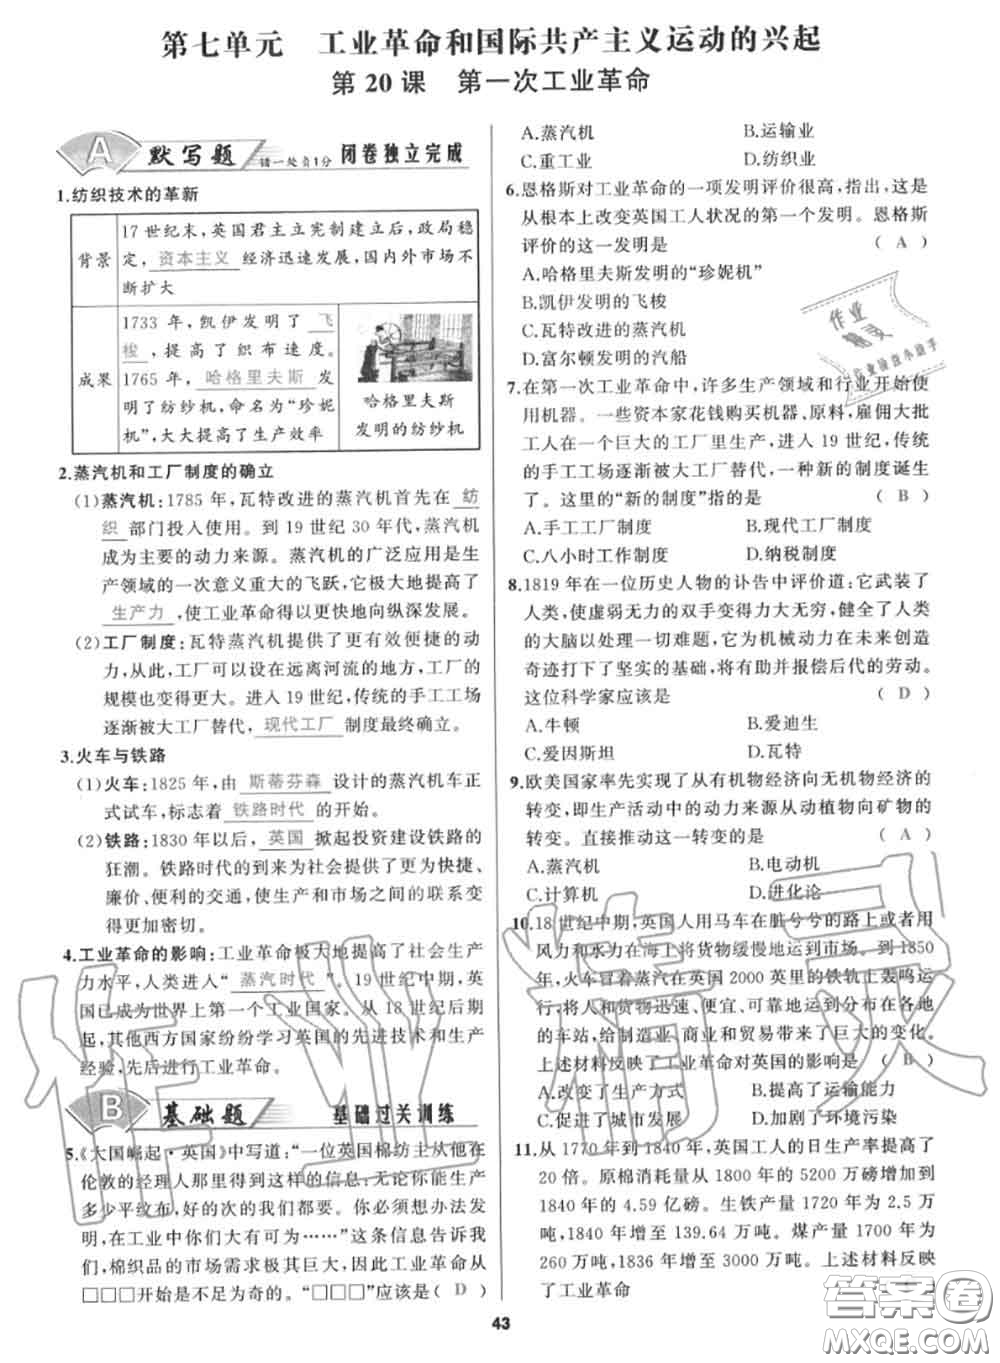 第七单元 工业革命和国际共产主义运动的兴起
第20课 第一次工业革命
A 默写题 错一处负1分 闭卷独立完成
1.纺织技术的革新
背景
17世纪末，英国君主立宪制建立后，政局稳
定，资本主义经济迅速发展，国内外市场不
断扩大
成果
1733年，凯伊发明了 飞
梭 ，提高了织布速度。
1765年， 哈格里夫斯 发
明了纺纱机，命名为“珍妮
机”，大大提高了生产效率
哈格里夫斯
发明的纺纱机
2.蒸汽机和工厂制度的确立
(1)蒸汽机：1785年，瓦特改进的蒸汽机首先在 纺
织 部门投入使用。到19世纪30年代，蒸汽机
成为主要的动力来源。蒸汽机的广泛应用是生
产领域的一次意义重大的飞跃，它极大地提高了
生产力 ，使工业革命得以更快地向纵深发展。
(2)工厂制度：瓦特蒸汽机提供了更有效便捷的动
力，从此，工厂可以设在远离河流的地方，工厂的
规模也变得更大。进入19世纪，传统的手工工场
逐渐被大工厂替代， 现代工厂 制度最终确立。
3.火车与铁路
(1)火车：1825年，由 斯蒂芬森 设计的蒸汽机车正
式试车，标志着 铁路时代 的开始。
(2)铁路：1830年以后， 英国 掀起投资建设铁路的
狂潮。铁路时代的到来为社会提供了更为快捷、
廉价、便利的交通，使生产和市场之间的联系变
得更加密切。
4.工业革命的影响：工业革命极大地提高了社会生产
力水平，人类进入“ 蒸汽时代 ”。19世纪中期，英
国已成为世界上第一个工业国家。从18世纪后期
起，其他西方国家纷纷学习英国的先进技术和生产
经验，先后进行工业革命。
B 基础题 基础过关训练
5.《大国崛起·英国》中写道：“一位英国棉纺主从他在
伦敦的经理人那里得到这样的信息，无论你能生产
多少平纹布，好的次的我们都要。你必须想办法发
明，在工业中你们大有可为……”这条信息告诉我
们，棉织品的市场需求极其巨大，因此工业革命从
□□□开始是不足为奇的。“□□□”应该是 （ D ）
A.蒸汽机 B.运输业
C.重工业 D.纺织业
6.恩格斯对工业革命的一项发明评价很高，指出，这是
从根本上改变英国工人状况的第一个发明。恩格斯
评价的这一发明是 （ A ）
A.哈格里夫斯发明的“珍妮机”
B.凯伊发明的飞梭
C.瓦特改进的蒸汽机
D.富尔顿发明的汽船
7.在第一次工业革命中，许多生产领域和行业开始使
用机器。一些资本家花钱购买机器、原料，雇佣大批
工人在一个巨大的工厂里生产，进入19世纪，传统
的手工工场逐渐被大工厂替代，一种新的制度诞生
了。这里的“新的制度”指的是 （ B ）
A.手工工厂制度 B.现代工厂制度
C.八小时工作制度 D.纳税制度
8.1819年在一位历史人物的讣告中评价道：它武装了
人类，使虚弱无力的双手变得力大无穷，健全了人类
的大脑以处理一切难题，它为机械动力在未来创造
奇迹打下了坚实的基础，将有助并报偿后代的劳动。
这位科学家应该是 （ D ）
A.牛顿 B.爱迪生
C.爱因斯坦 D.瓦特
9.欧美国家率先实现了从有机物经济向无机物经济的
转变，即生产活动中的动力来源从动植物向矿物的
转变。直接推动这一转变的是 （ A ）
A.蒸汽机 B.电动机
C.计算机 D.进化论
10.18世纪中期，英国人用马车在脏兮兮的路上或者用
风力和水力在海上将货物缓慢地运到市场。到1850
年，火车冒着蒸汽在英国2000英里的铁轨上轰鸣运
行，将人和货物迅速、便宜、可靠地运到分布在各地
的车站，给制造业、商业和贸易带来了巨大的变化。
上述材料反映了工业革命对英国的影响是 （ B ）
A.改变了生产方式 B.提高了运输能力
C.促进了城市发展 D.加剧了环境污染
11.从1770年到1840年，英国工人的日生产率提高了
20倍。原棉消耗量从1800年的5200万磅增至
1840年的4.59亿磅。生铁产量1720年为2.5万
吨，1840年增至139.64万吨。煤产量1700年为
260万吨，1836年增至3000万吨。上述材料反映
了工业革命
43
作业
精灵
作业精灵
答案圈
MXQE.COM